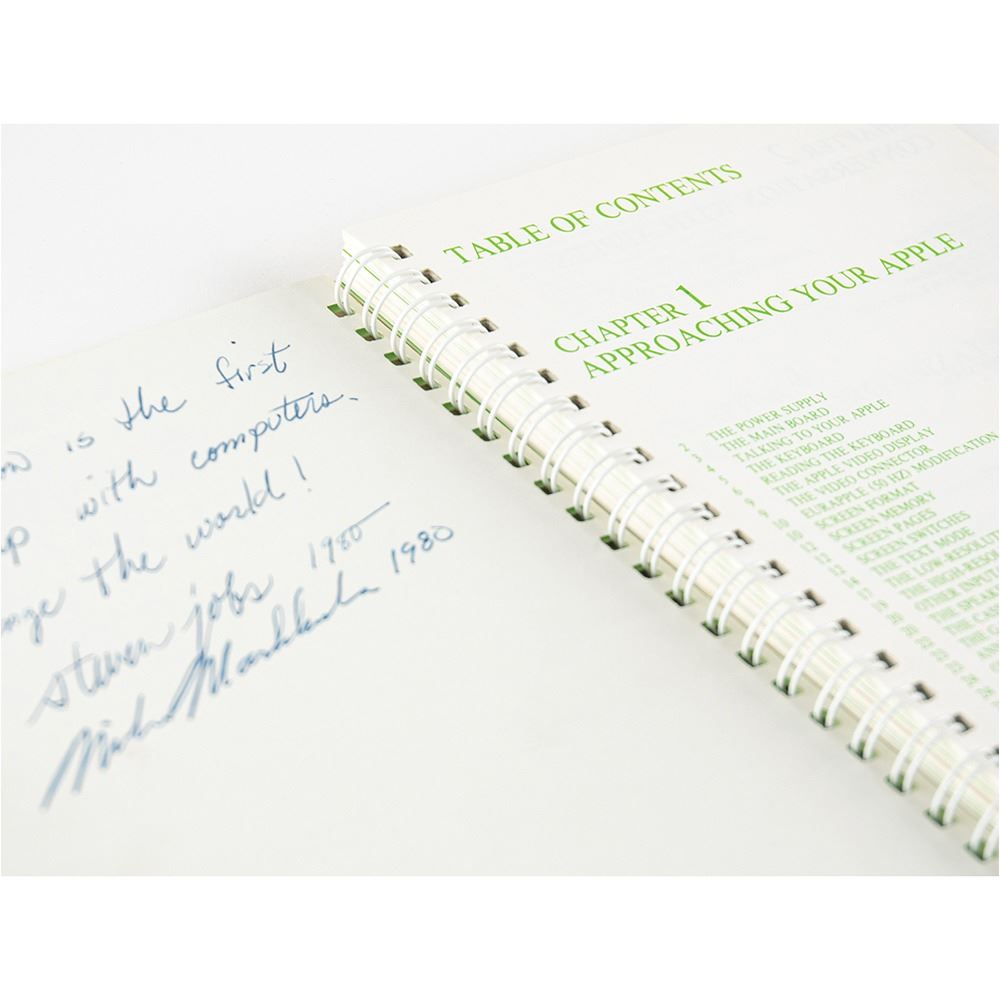 is the first
with computers.
the world!
steven jobs 1980
Mike Markkula 1980
TABLE OF CONTENTS
CHAPTER 1
APPROACHING YOUR APPLE
2 THE POWER SUPPLY
3 THE MAIN BOARD
4 TALKING TO YOUR APPLE
5 THE KEYBOARD
6 READING THE KEYBOARD
9 THE APPLE VIDEO DISPLAY
9 THE VIDEO CONNECTOR
10 EURAPPLE (50 HZ) MODIFICATION
10 SCREEN FORMAT
12 SCREEN MEMORY
12 SCREEN PAGES
SCREEN SWITCHES
THE TEXT MODE
THE LOW-RESOLUT
THE HIGH-RESOL
OTHER INPUT
THE SPEAK
THE CAS
THE